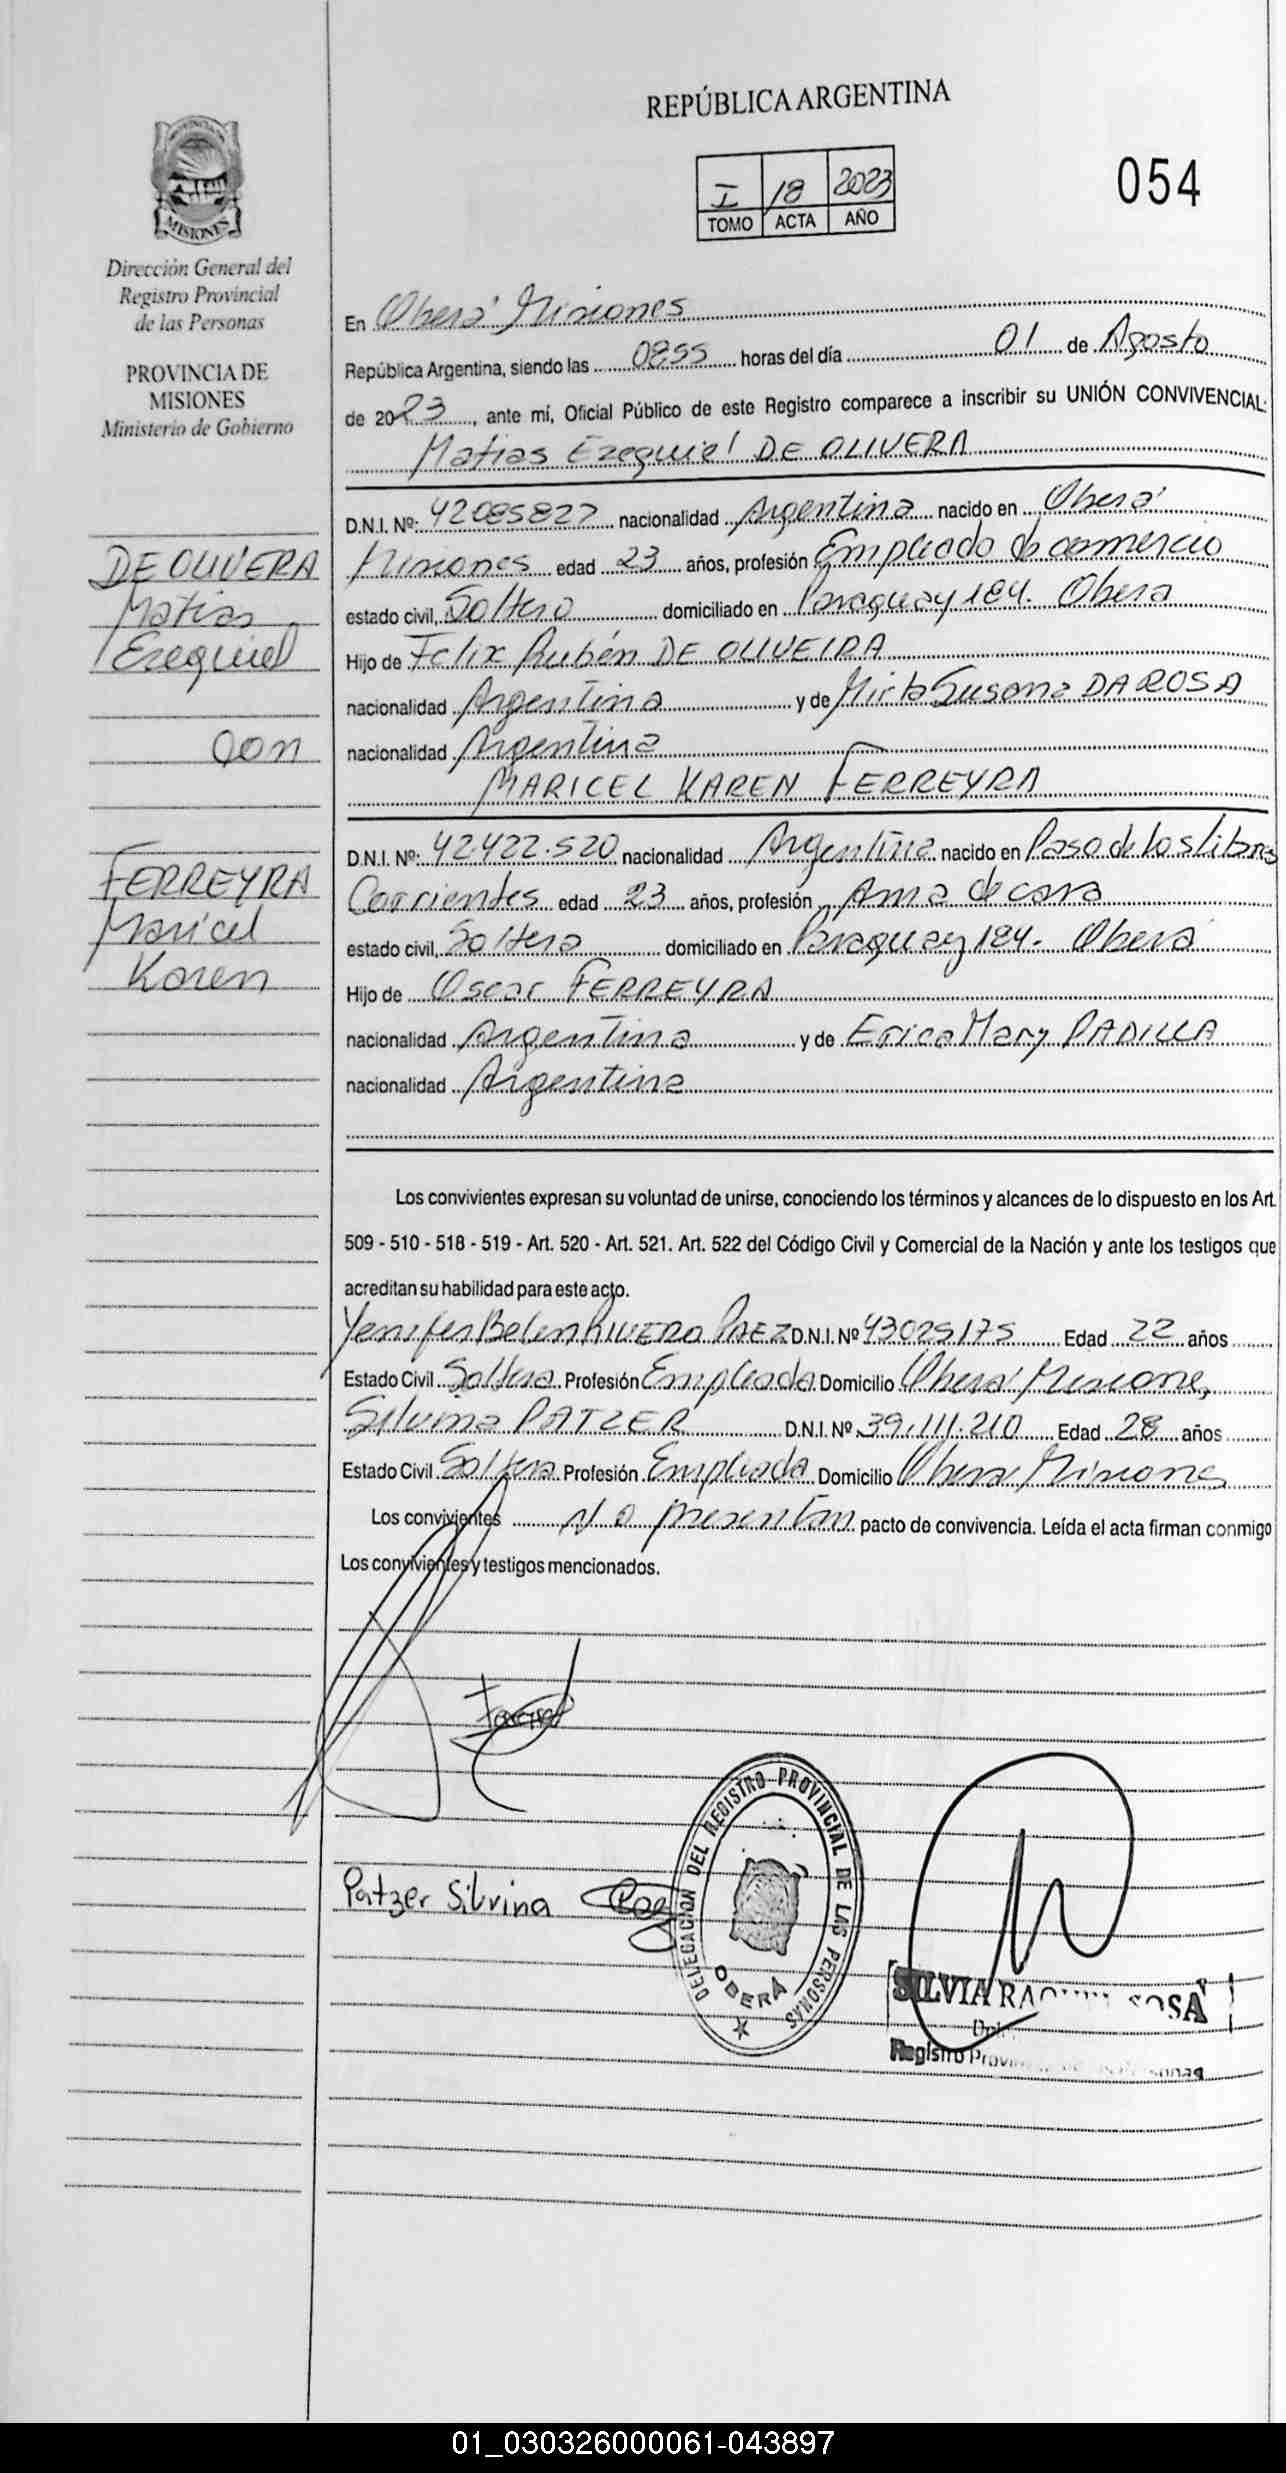 REPÚBLICA ARGENTINA
I 18 2023
TOMO ACTA AÑO
054
MISIONES
Dirección General del
Registro Provincial
de las Personas
PROVINCIA DE
MISIONES
Ministerio de Gobierno
DE OLIVERA
Matias
Ezequiel
con
FERREYRA
Maricel
Karen
En Oberá Misiones
República Argentina, siendo las 0855 horas del día 01 de Agosto
de 2023, ante mí, Oficial Público de este Registro comparece a inscribir su UNIÓN CONVIVENCIAL:
Matias Ezequiel DE OLIVERA
D.N.I. Nº: 42085827 nacionalidad Argentina nacido en Oberá
Misiones edad 23 años, profesión Empleado de comercio
estado civil, Soltero domiciliado en Paraguay 184. Oberá
Hijo de Felix Rubén DE OLIVEIRA
nacionalidad Argentina y de Mirta Susana DA ROSA
nacionalidad Argentina
MARICEL KAREN FERREYRA
D.N.I. Nº: 42.422.520 nacionalidad Argentina nacido en Paso de los Libres
Corrientes edad 23 años, profesión Ama de casa
estado civil, Soltera domiciliado en Paraguay 184. Oberá
Hijo de Oscar FERREYRA
nacionalidad Argentina y de Erica Mary PADILLA
nacionalidad Argentina
Los convivientes expresan su voluntad de unirse, conociendo los términos y alcances de lo dispuesto en los Art.
509 - 510 - 518 - 519 - Art. 520 - Art. 521. Art. 522 del Código Civil y Comercial de la Nación y ante los testigos que
acreditan su habilidad para este acto.
Yenifer Belen RIVERO PAEZ D.N.I. Nº 43025175 Edad 22 años
Estado Civil Soltera Profesión Empleada Domicilio Oberá Misiones
Silvina PATZER D.N.I. Nº 39.111.210 Edad 28 años
Estado Civil Soltera Profesión Empleada Domicilio Oberá Misiones
Los convivientes No presentan pacto de convivencia. Leída el acta firman conmigo
Los convivientes y testigos mencionados.
Patzer Silvina
DELEGACION DEL REGISTRO PROVINCIAL DE LAS PERSONAS
OBERÁ
SILVIA RAQUEL SOSA
Registro
01_030326000061-043897